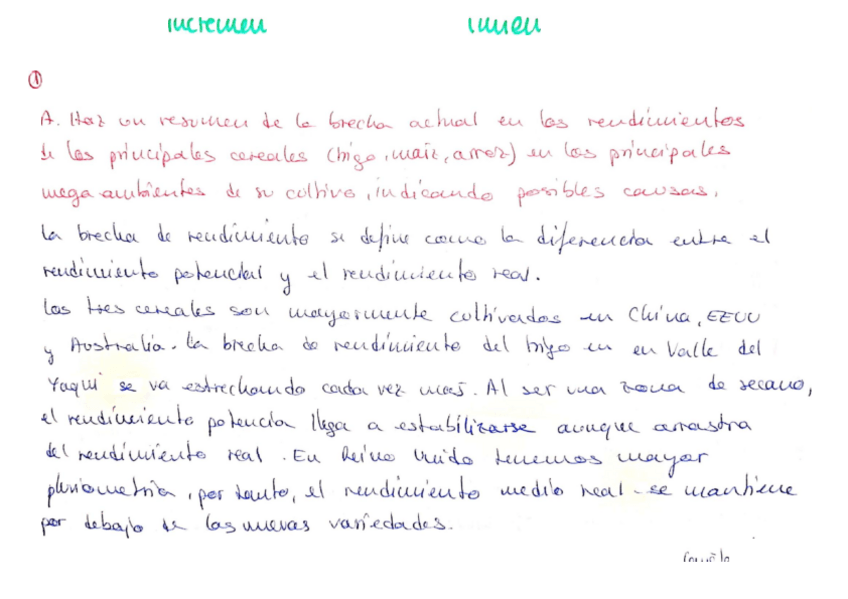 incremen
①
A. Haz un resumen de la brecha actual en los rendimientos
de los principales cereales (trigo, maíz, arroz) en los principales
mega-ambientes de su cultivo, indicando posibles causas.
la brecha de rendimiento se define como la diferencia entre el
rendimiento potencial y el rendimiento real.
los tres cereales son mayormente cultivados en China, EEUU
y Australia. la brecha de rendimiento del trigo en en Valle del
Yaqui se va estrechando cada vez mas. Al ser una zona de secano,
el rendimiento potencia llega a estabilizarse aunque arrastra
del rendimiento real. En Reino Unido tenemos mayor
pluviometría, por tanto, el rendimiento medio real se mantiene
por debajo de las nuevas variedades.